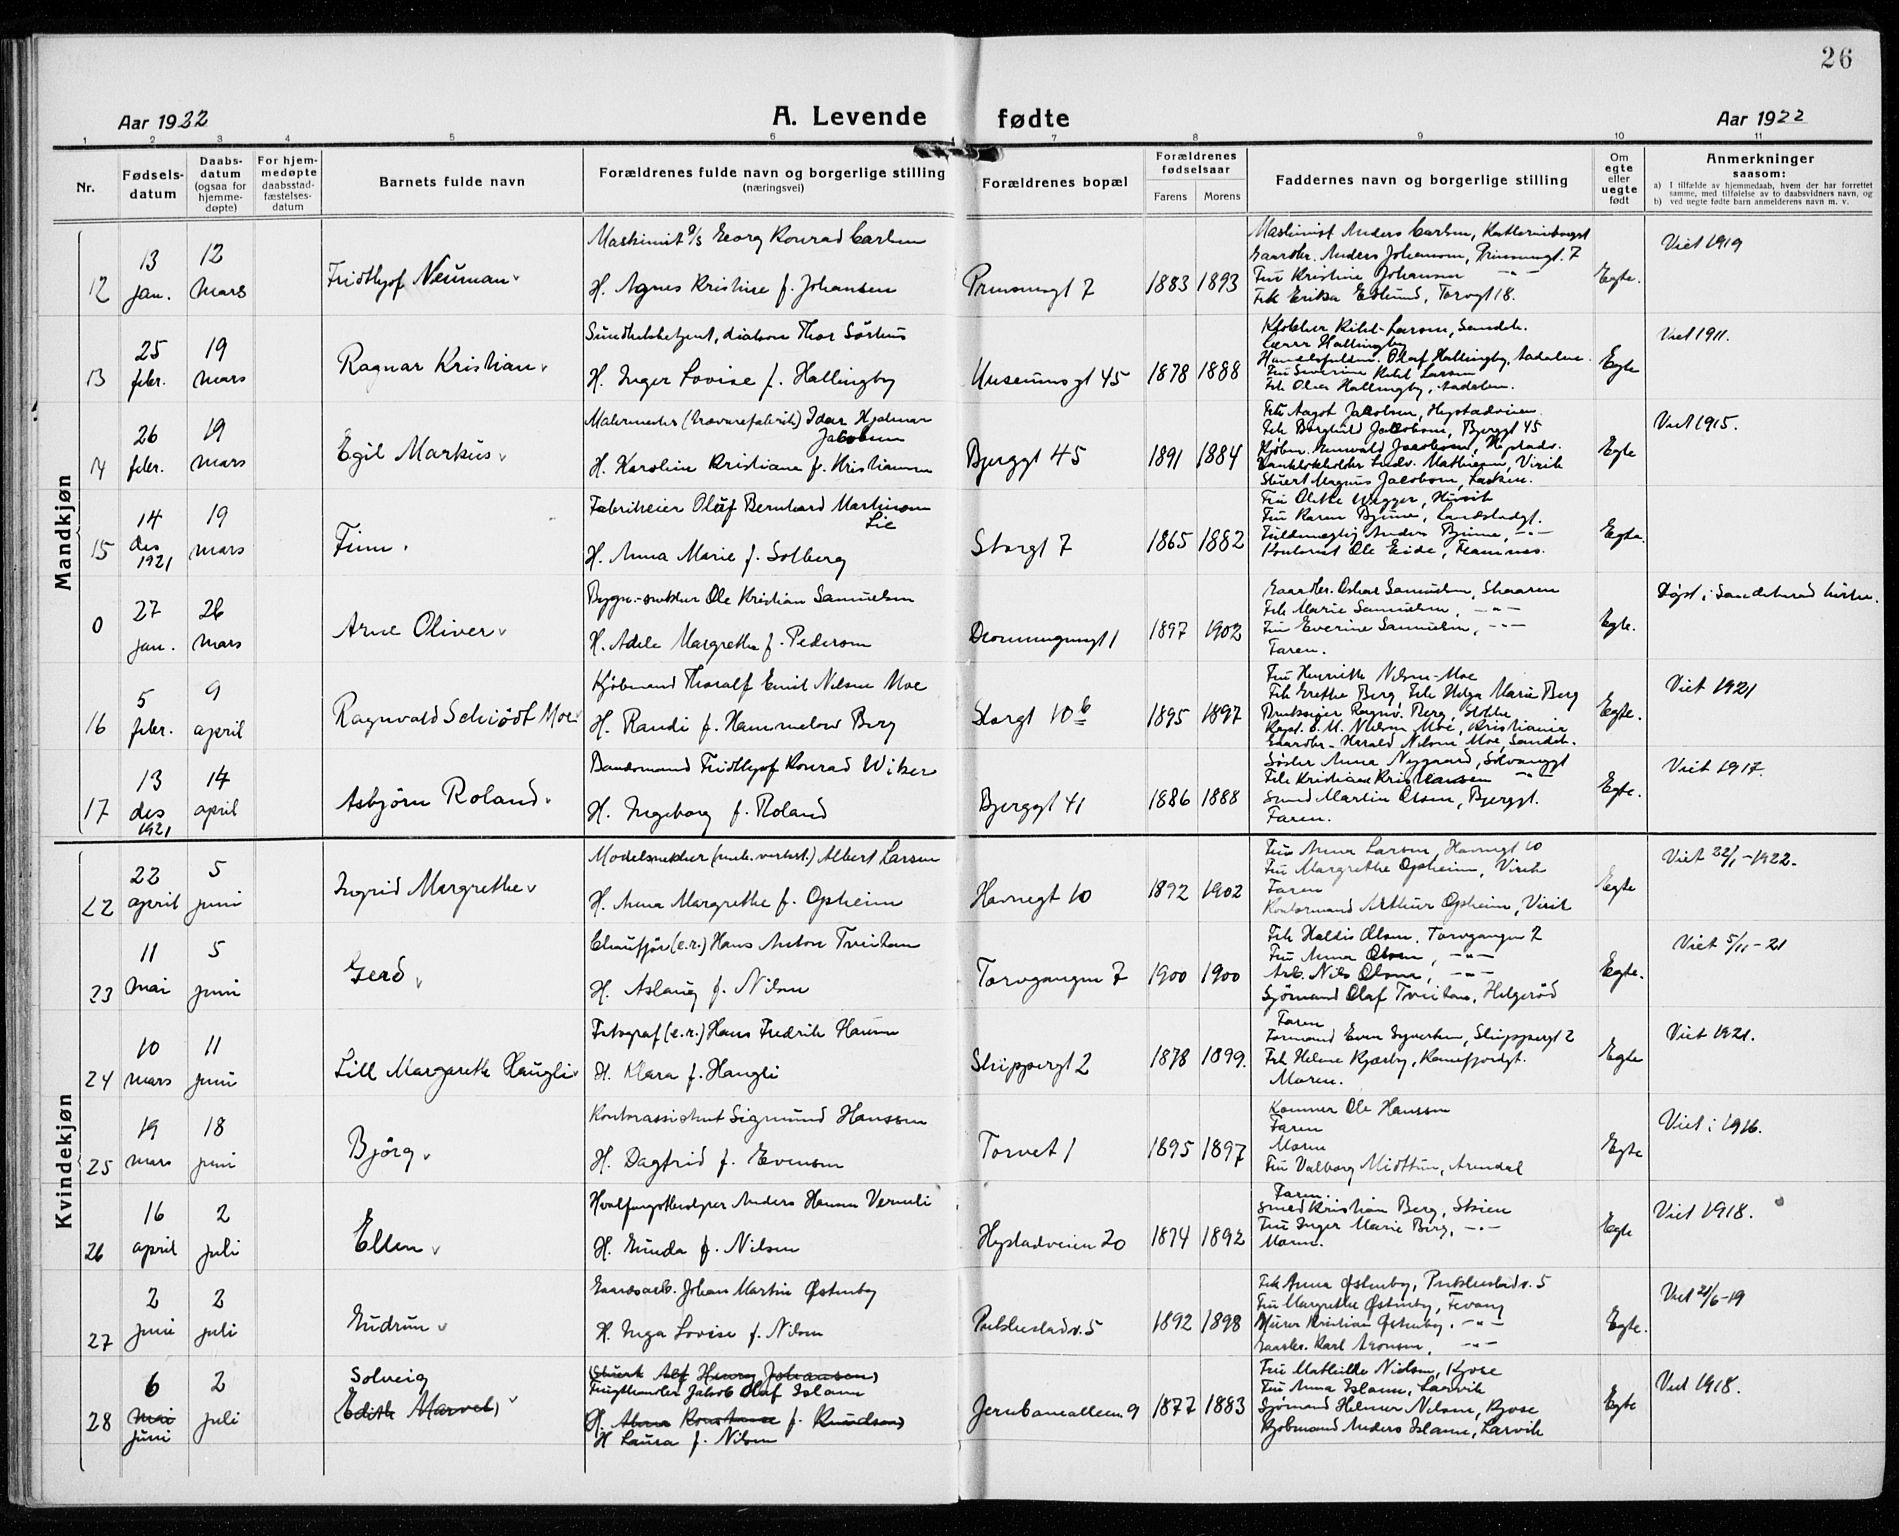 26
Aar 1922
A. Levende fødte
Aar 1922
1 2 3 4 5 6 7 8 9 10 11
Nr.
Fødsels-
datum
Daabs-
datum
(ogsaa for
hjemme-
døpte)
For hjem-
medøpte
daabsstad-
fæstelses-
datum
Barnets fulde navn
Forældrenes fulde navn og borgerlige stilling
(næringsvei)
Forældrenes bopæl
Forældrenes
fødselsaar
Farens Morens
Faddernes navn og borgerlige stilling
Om
egte
eller
uegte
født
Anmerkninger
saasom:
a) I tilfælde av hjemmedaab, hvem der har forrettet
samme, med tilføielse av to daabsvidners navn, og
b) ved uegte fødte barn anmelderens navn m. v.
Mandkjøn
12
13
jan.
12
mars
Fridthjof Neuman
Maskinist Georg Konrad Carlsen
H. Agnes Kristine f. Johansen
Prinsensgt 7
1883 1893
Maskinist Anders Carlsen,
Gaardbr. Anders Johansen, Prinsensgt. 7
Fru Kristine Johansen -"-
Frk Erika Eklund, Torvgt 18.
Egte.
Viet 1919
13
25
febr.
19
mars
Ragnar Kristian
diakon Thor Sørhus
H. Inger Lovise f. Hallingby
Museumsgt 45
1878 1888
Klokker Kihl-Larsen, Sandeh.
Lærer Hallingby
Olaf Hallingby, Aadalen
Fru Severine Kihl Larsen
Frk Olea Hallingby, Aadalen.
Egte
Viet 1911.
14
26
febr.
19
mars
Egil Markus
Malermester (trævarefabrik) Idar Hjalmar
Jacobsen
H. Karoline Kristiane f. Kristiansen
Bjerggt 45
1891 1884
Frk Aagot Jacobsen, Hystadveien
Frk Borghild Jacobsen, Bjerggt 45
Kjøbm. Jacobsen, Hystadv.
Ludv. Mathisen, Virik
Stuert Magnus Jacobsen,
Egte
Viet 1915.
15
14
des
1921
19
mars
Finn
Fabrikeier Oluf Bernhard Martinsen
Lie
H. Anna Marie f. Solberg
Storgt 7
1865 1882
Fru Olette Wegger, Huvik
Fru Karen Bjune, Landstadgt.
Fuldmægtig Anders Bjune, -"-
Kontorist Ole Eide, Framnes.
Egte.
0
27
jan.
26
mars
Arne Oliver
Ole Kristian Samuelsen
H. Adele Margrethe f. Pedersen
Dronningensgt 1
1897 1902
Gaardbr. Oskar Samuelsen, Skaaren
Frk Marie Samuelsen, -"-
Fru Everine Samuelsen, -"-
Faren.
Egte.
Døpt i Sandeherad kirke.
16
5
febr.
9
april
Ragnvald Schiödt Moe
Kjøbmand Thoralf Emil Nilsen Moe
H. Randi f. Hammelow Berg
Storgt 10 b
1895 1897
Fru Henriette Nilsen-Moe
Frk Grethe Berg Frk Helga Marie Berg
Bruksejer Ragnv. Berg, Stokke
Kapt. O. M. Nilsen Moe, Kristiania
Gaardbr. Harald Nilsen Moe, Sandeh.
Egte.
Viet 1921
17
13
des
1921
14
april
Asbjørn Roland
Baadsmand Fridthjof Konrad Wiker
H. Ingeborg f. Roland
Bjerggt 41
1886 1888
Søster Anna Nygaard, Solvanggt
Frk Kristiane Kristiansen -"-
Smed Martin Olsen, Bjerggt.
Faren.
Egte.
Viet 1917.
Kvindekjøn
22
22
april
5
juni
Ingrid Margrethe
Modelsnekker (mek. verkst.) Albert Larsen
H. Anna Margrethe f. Opheim
Havnegt 10
1892 1902
Fru Anna Larsen, Havnegt 10
Fru Margrethe Opheim, Virik
Faren
Kontormand Arthur Opheim, Virik
Egte
Viet 22/1-1922.
23
11
mai
5
juni
Gerd
Chauffør (e.r.) Hans Anton Tveitan
H. Aslaug f. Nilsen
Torvgangen 7
1900 1900
Frk Haldis Olsen, Torvgangen 7
Fru Anna Olsen, -"-
Arb. Nils Olsen, -"-
Sjømand Olaf Tveitan, Helgerød
Egte.
Viet 5/11-21
24
10
mars
11
juni
Lill Margareth Haugli
Fotograf (e.r.) Hans Fredrik Hansen
H. Klara f. Haugli
Skippergt 2
1878 1899.
Faren
Formand Even Syvertsen, Skippergt 2
Frk Helene Kjærby, Ramfjordgt.
Moren.
Egte
Viet 1921.
25
19
mars
18
juni
Björg
Kontorassistent Sigmund Hanssen
H. Dagfrid f. Evensen
Torvet 1
1895 1897
Kemner Ole Hanssen
Faren
Moren
Fru Valborg Midttun, Arendal
Egte
Viet i 1916.
26
16
april
2
juli
Ellen
Hvalfangstbestyrer Anders Hansen Vermeli
H. Gunda f. Nilsen
Hystadveien 20
1874 1892
Faren.
Smed Kristian Berg, Skien
Fru Inger Marie Berg, -"-
Moren.
Egte
Viet 1918.
27
2
juni
2
juli
Gudrun
Gaardsarb. Johan Martin Østenby
H. Inga Lovise f. Nilsen
Peeblestadv. 5
1892 1898
Frk Anna Østenby, 5
Fru Margrethe Østenby, Fevang
Murer Kristian Østenby, -"-
Gaardbr. Karl Aronsen, -"-
Egte.
Viet 21/6-19
28
6
mai
juni
2
juli
Solveig
(Edith Marvel)
(Stuert Alf Henry Johansen)
Jakob Olaf Islann
(H. Anna Konstanse f. Knudsen)
H Laura f. Nilsen
Jernbanealleen 9
1877 1883
Fru Mathilde Nielsen, Kjose
Fru Anna Islann, Larvik
Sjømand Helmer Nilsen, Kjose
Kjøbmand Anders Islann, Larvik
Egte
Viet 1918.